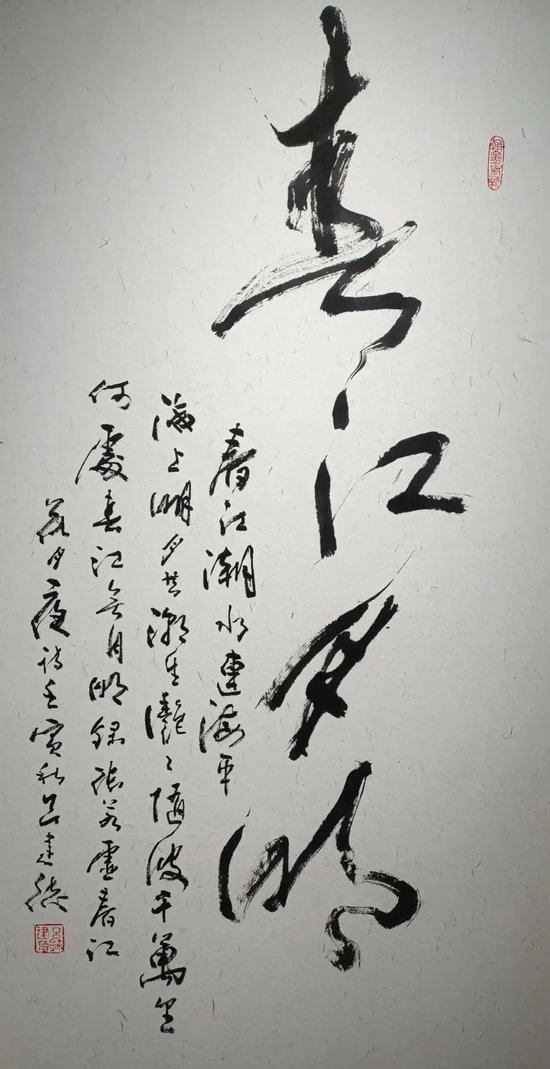 春江月明
春江潮水連海平
海上明月共潮生灩〻隨波千萬里
何處春江無月明錄張若虛春江
花月夜詩壬寅秋吕建德